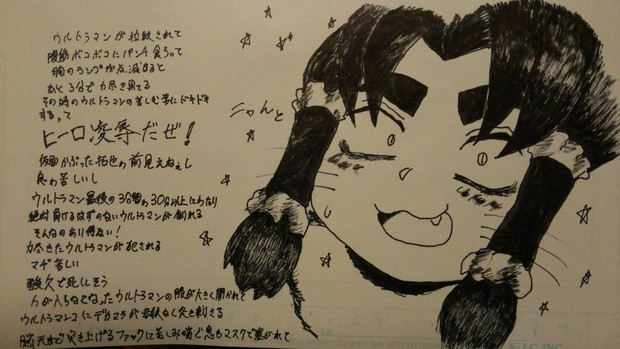 ウルトラマンが拉致されて
腹筋ボコボコにパンチ食らって
胸のランプが点滅すると
あと3分で力尽き果てる
その時のウルトラマンの苦しむ姿にドキドキ
するって
ヒーロ凌辱だぜ!
仮面かぶった拓也わ前見えねぇし
息わ苦しいし
ウルトラマン最後の3分間わ30分以上にわたり
絶対負けるはずのないウルトラマンが倒れる
そんなのあり得ない!
力尽きたウルトラマンが犯される
マヂ苦しい
酸欠で死にそう
力が入らなくなったウルトラマンの股が大きく開かれて
ウルトラマンコにデカマラが容赦なく突き刺さる
脳天まで突き上げるファックに苦しみ喘ぐ息もマスクで塞がれて
にゃんと